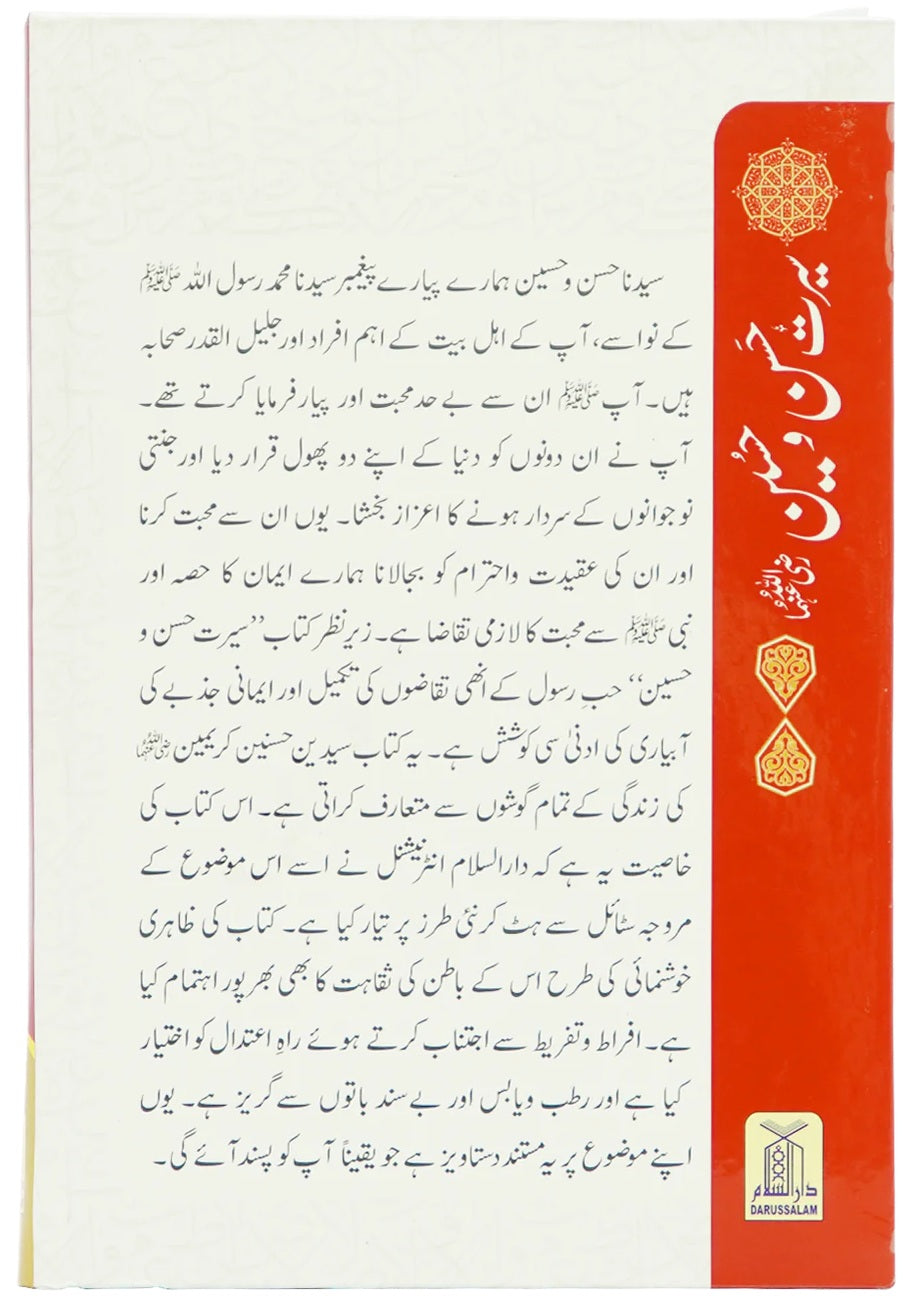 سیدنا حسن و حسین ہمارے پیارے پیغمبر سیدنا محمد رسول اللہ ﷺ
کے نواسے، آپ کے اہل بیت کے اہم افراد اور جلیل القدر صحابہ
ہیں۔ آپ ﷺ ان سے بے حد محبت اور پیار فرمایا کرتے تھے۔
آپ نے ان دونوں کو دنیا کے اپنے دو پھول قرار دیا اور جنتی
نوجوانوں کے سردار ہونے کا اعزاز بخشا۔ یوں ان سے محبت کرنا
اور ان کی عقیدت واحترام کو بجالانا ہمارے ایمان کا حصہ اور
نبی ﷺ سے محبت کا لازمی تقاضا ہے۔ زیرِ نظر کتاب ’’سیرت حسن و
حسین‘‘ حبِ رسول کے انھی تقاضوں کی تکمیل اور ایمانی جذبے کی
آبیاری کی ادنیٰ سی کوشش ہے۔ یہ کتاب سیدین حسنین کریمین رضی اللہ عنہما
کی زندگی کے تمام گوشوں سے متعارف کراتی ہے۔ اس کتاب کی
خاصیت یہ ہے کہ دارالسلام انٹرنیشنل نے اسے اس موضوع کے
مروجہ سٹائل سے ہٹ کر نئی طرز پر تیار کیا ہے۔ کتاب کی ظاہری
خوشنمائی کی طرح اس کے باطن کی ثقاہت کا بھی بھرپور اہتمام کیا
ہے۔ افراط وتفریط سے اجتناب کرتے ہوئے راہِ اعتدال کو اختیار
کیا ہے اور رطب ویابس اور بے سند باتوں سے گریز ہے۔ یوں
اپنے موضوع پر یہ مستند دستاویز ہے جو یقیناً آپ کو پسند آئے گی۔
سیرت حسَن و حسُین رضی اللہ عنہما
دارالسلام
DARUSSALAM